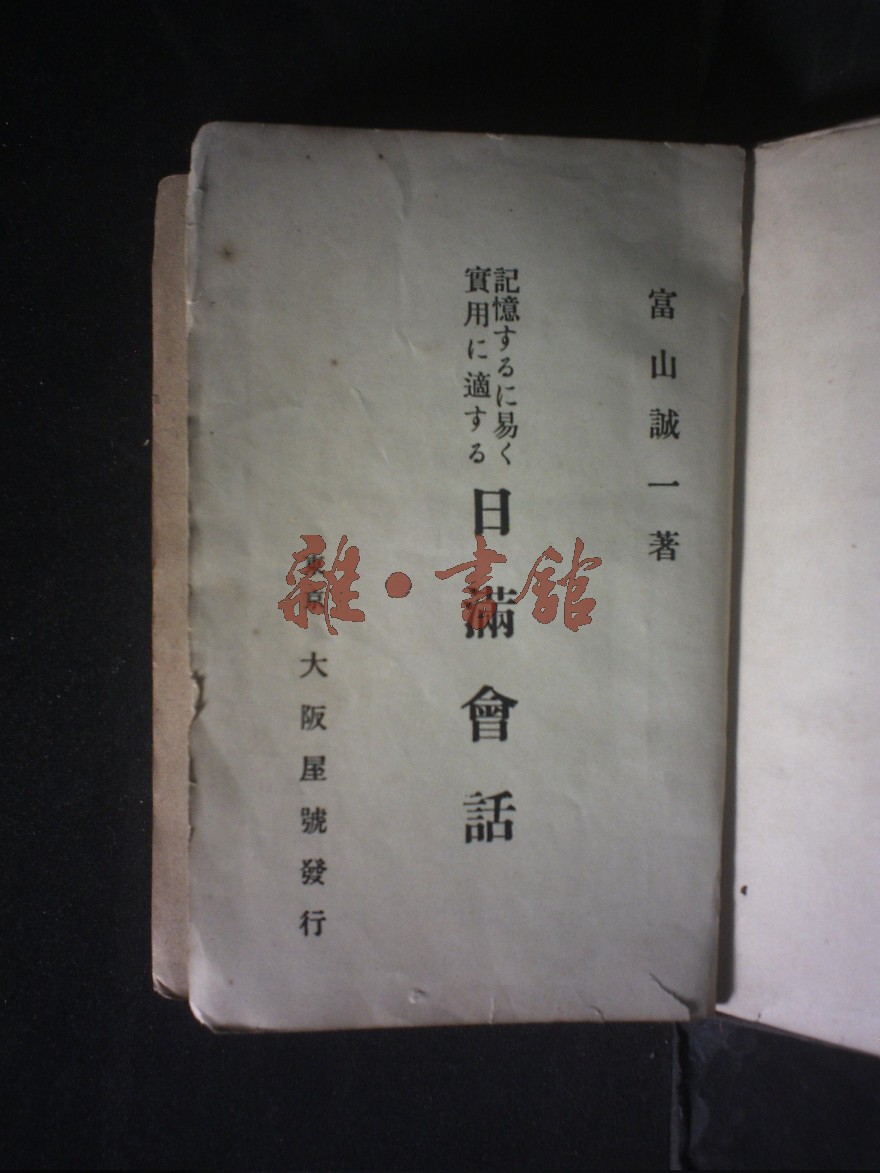 富山誠一著
記憶するに易く
實用に適する
日滿會話
東京 大阪屋號發行
雜·書館